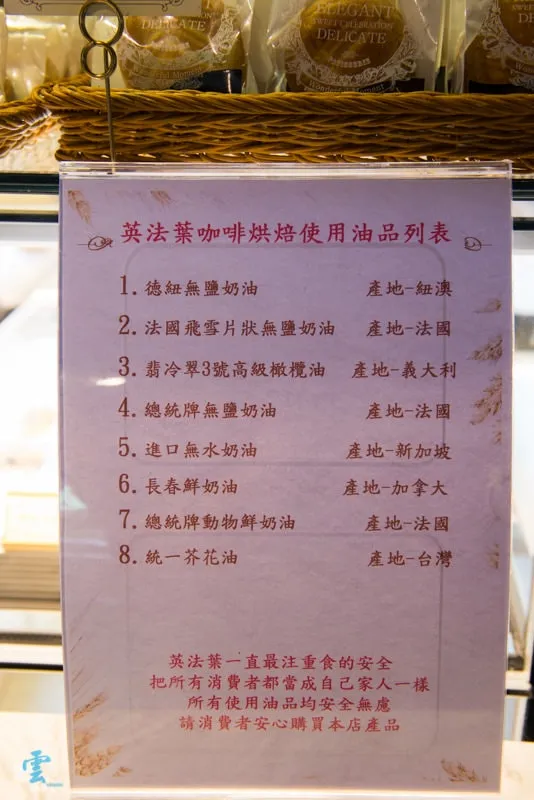 ELEGANT
SWEET CELEBRATION
DELICATE
DELICATE
英法葉咖啡烘焙使用油品列表
1.德紐無鹽奶油 產地-紐澳
2.法國飛雪片狀無鹽奶油 產地-法國
3.翡冷翠3號高級橄欖油 產地-義大利
4.總統牌無鹽奶油 產地-法國
5.進口無水奶油 產地-新加坡
6.長春鮮奶油 產地-加拿大
7.總統牌動物鮮奶油 產地-法國
8.統一芥花油 產地-台灣
英法葉一直最注重食的安全
把所有消費者都當成自己家人一樣
所有使用油品均安全無慮
請消費者安心購買本店產品
雲